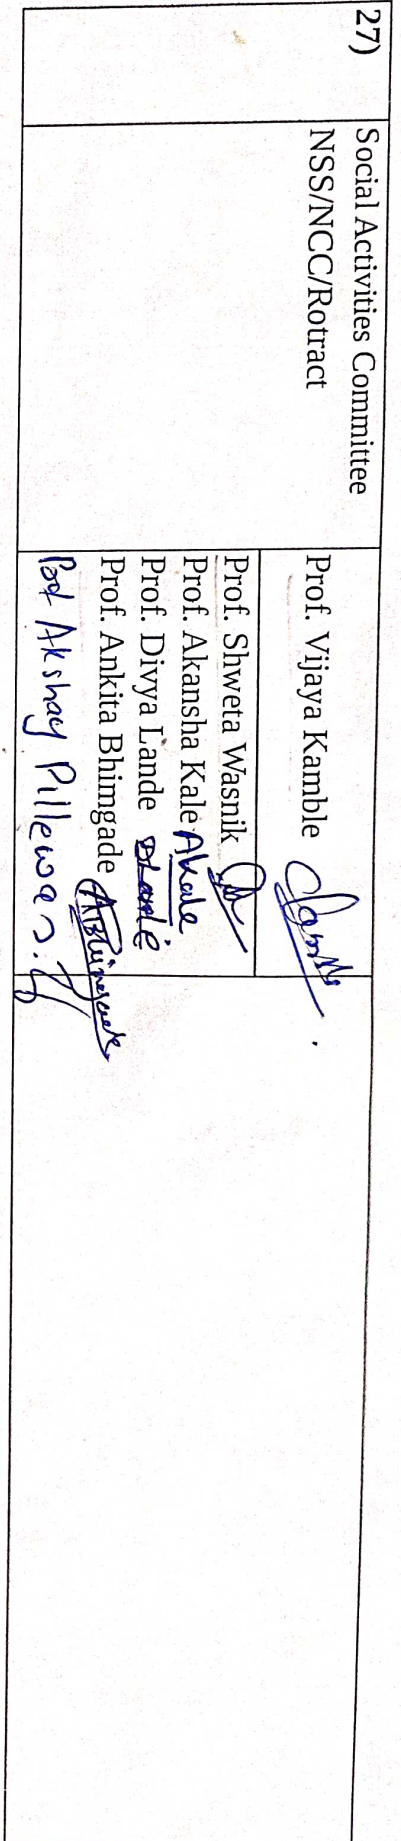 27)
Social Activities Committee
NSS/NCC/Rotract
Prof. Vijaya Kamble
Prof. Shweta Wasnik
Prof. Akansha Kale AKale
Prof. Divya Lande DLande
Prof. Ankita Bhimgade ABhimgade
Prof Akshay Pillewan.